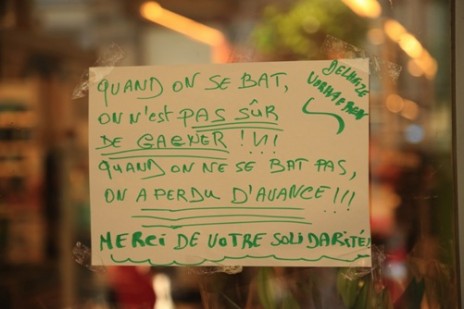 QUAND ON SE BAT,
ON N'EST PAS SÛR
DE GAGNER !\!\!
QUAND ON NE SE BAT PAS,
ON A PERDU D'AVANCE !!!
MERCI DE VOTRE SOLIDARITÉ!
DELHAIZE